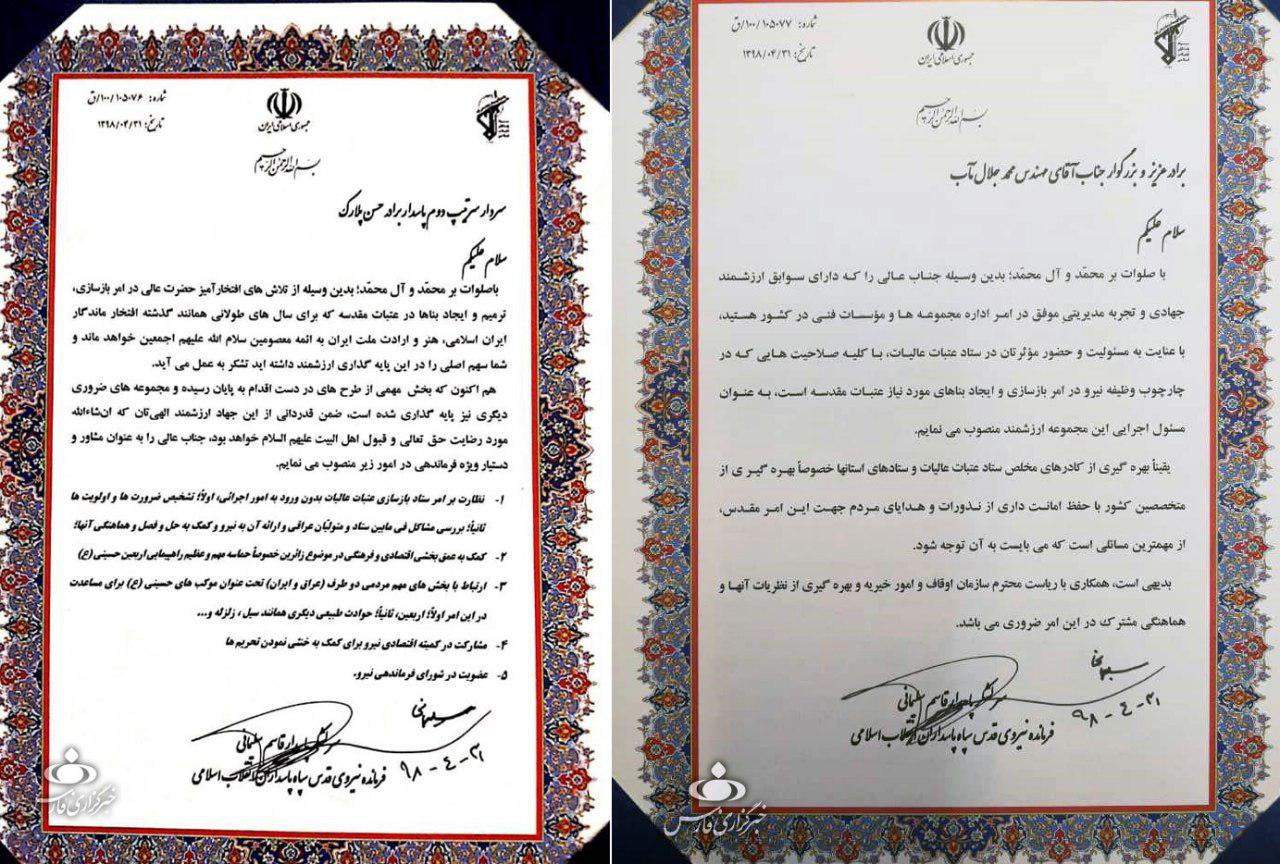 شماره: ۱۰۰/۱۰۵۰۷۷/ق
تاریخ: ۱۳۹۸/۰۴/۳۱
جمهوری اسلامی ایران
بسم الله الرحمن الرحیم
برادر عزیز و بزرگوار جناب آقای مهندس محمد جلال مآب
سلام علیکم
با صلوات بر محمّد و آل محمّد؛ بدین وسیله جناب عالی را که دارای سوابق ارزشمند
جهادی و تجربه مدیریتیِ موفق در امر اداره مجموعه ها و مؤسسات فنی در کشور هستید،
با عنایت به مسئولیت و حضور مؤثرتان در ستاد عتبات عالیات، با کلیه صلاحیت هایی که در
چارچوب وظیفه نیرو در امر بازسازی و ایجاد بناهای مورد نیاز عتبات مقدسه است، به عنوان
مسئول اجرایی این مجموعه ارزشمند منصوب می نمایم.
یقیناً بهره گیری از کادرهای مخلص ستاد عتبات عالیات و ستادهای استانها خصوصاً بهره گیری از
متخصصین کشور با حفظ امانت داری از نذورات و هدایای مردم جهت این امر مقدس،
از مهمترین مسائلی است که می بایست به آن توجه شود.
بدیهی است، همکاری با ریاست محترم سازمان اوقاف و امور خیریه و بهره گیری از نظریات آنها و
هماهنگی مشترک در این امر ضروری می باشد.
سرلشکر پاسدار قاسم سلیمانی
فرمانده نیروی قدس سپاه پاسداران انقلاب اسلامی
۹۸-۴-۳۱
خبرگزاری فارس
شماره: ۱۰۰/۱۰۵۰۷۶/ق
تاریخ: ۱۳۹۸/۰۴/۳۱
جمهوری اسلامی ایران
بسم الله الرحمن الرحیم
سردار سرتیپ دوم پاسدار برادر حسن پلارک
سلام علیکم
باصلوات بر محمّد و آل محمّد؛ بدین وسیله از تلاش های افتخارآمیز حضرت عالی در امر بازسازی،
ترمیم و ایجاد بناها در عتبات مقدسه که برای سال های طولانی همانند گذشته افتخار ماندگار
ایران اسلامی، هنر و ارادت ملت ایران به ائمه معصومین سلام الله علیهم اجمعین خواهد ماند و
شما سهم اصلی را در این پایه گذاری ارزشمند داشته اید تشکر به عمل می آید.
هم اکنون که بخش مهمی از طرح های در دست اقدام به پایان رسیده و مجموعه های ضروری
دیگری نیز پایه گذاری شده است، ضمن قدردانی از این جهاد ارزشمند الهی‌تان که ان‌شاءالله
مورد رضایت حق تعالی و قبول اهل البیت علیهم السلام خواهد بود، جناب عالی را به عنوان مشاور و
دستیار ویژه فرماندهی در امور زیر منصوب می نمایم.
۱- نظارت بر امر ستاد بازسازی عتبات عالیات بدون ورود به امور اجرائی، اولاً؛ تشخیص ضرورت ها و اولویت ها
ثانیاً؛ بررسی مشاکل فی مابین ستاد و متولیّان عراقی و ارائه آن به نیرو و کمک به حل و فصل و هماهنگی آنها؛
۲- کمک به عمق بخشی اقتصادی و فرهنگی در موضوع زائرین خصوصاً حماسه مهم و عظیم راهپیمایی اربعین حسینی (ع)
۳- ارتباط با بخش های مهم مردمی دو طرف (عراق و ایران) تحت عنوان موکب های حسینی (ع) برای مساعدت
در این امر اولاً؛ اربعین، ثانیاً؛ حوادث طبیعی دیگری همانند سیل ، زلزله و...
۴- مشارکت در کمیته اقتصادی نیرو برای کمک به خنثی نمودن تحریم ها
۵- عضویت در شورای فرماندهی نیرو.
سرلشکر پاسدار قاسم سلیمانی
فرمانده نیروی قدس سپاه پاسداران انقلاب اسلامی
۹۸-۴-۳۱
خبرگزاری فارس